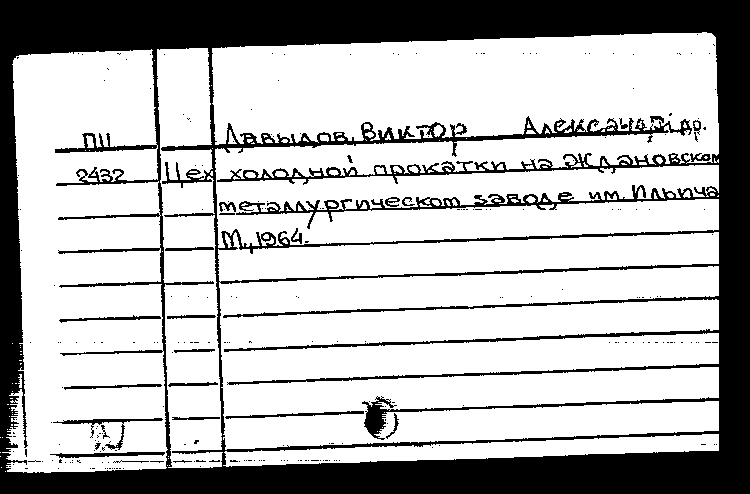 ПII Давыдов, Виктор Александр.
2432 Цех холодной прокатки на Ждановском
металлургическом заводе им. Ильича
М., 1964.